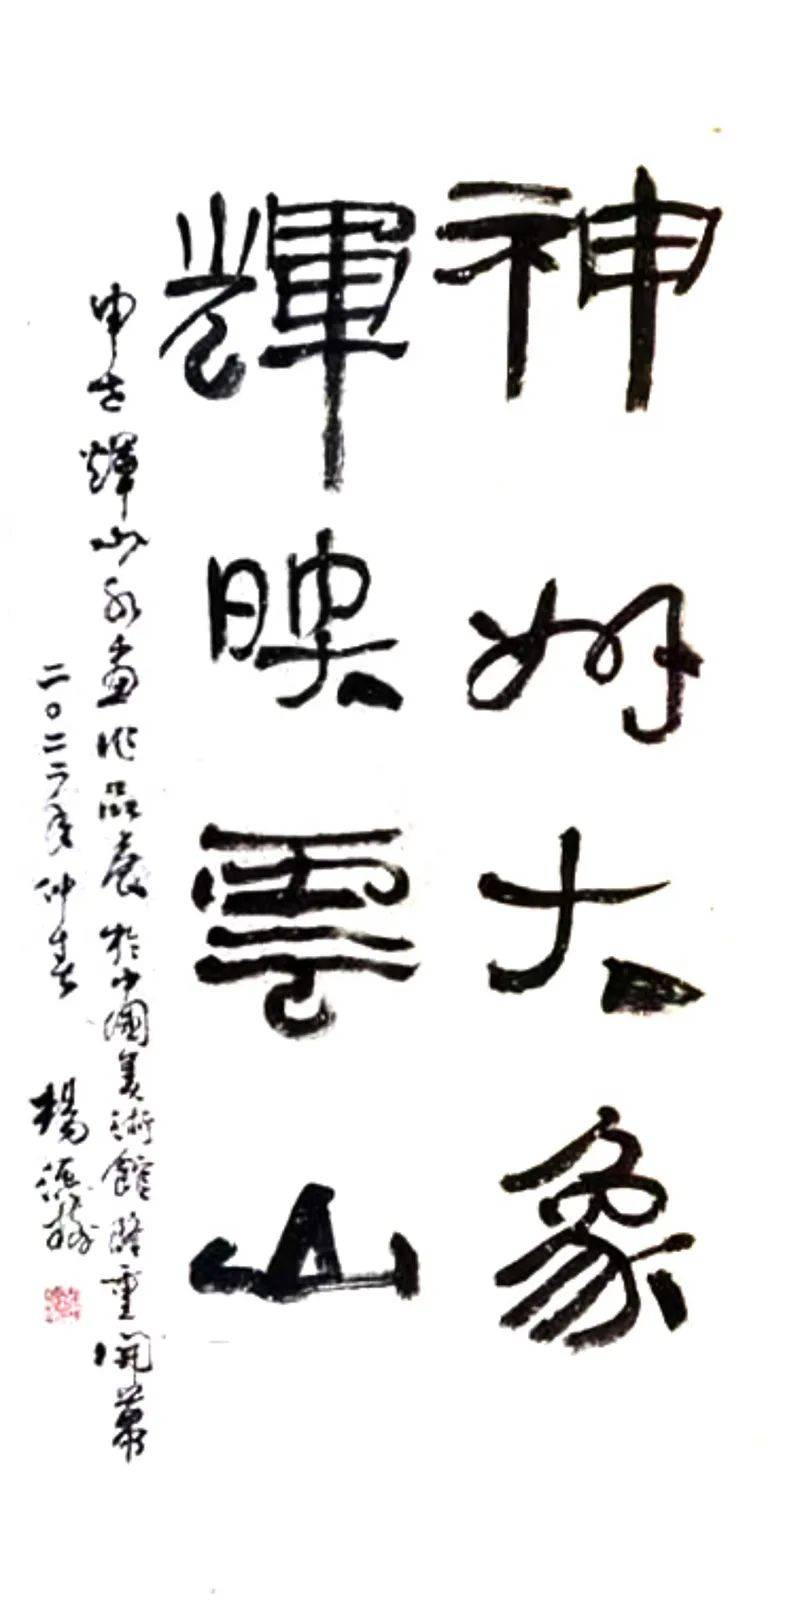 神大象
輝映雲山
申輝山水畫作品展於中國美術館隆重開幕
二〇二二年仲春 楊德